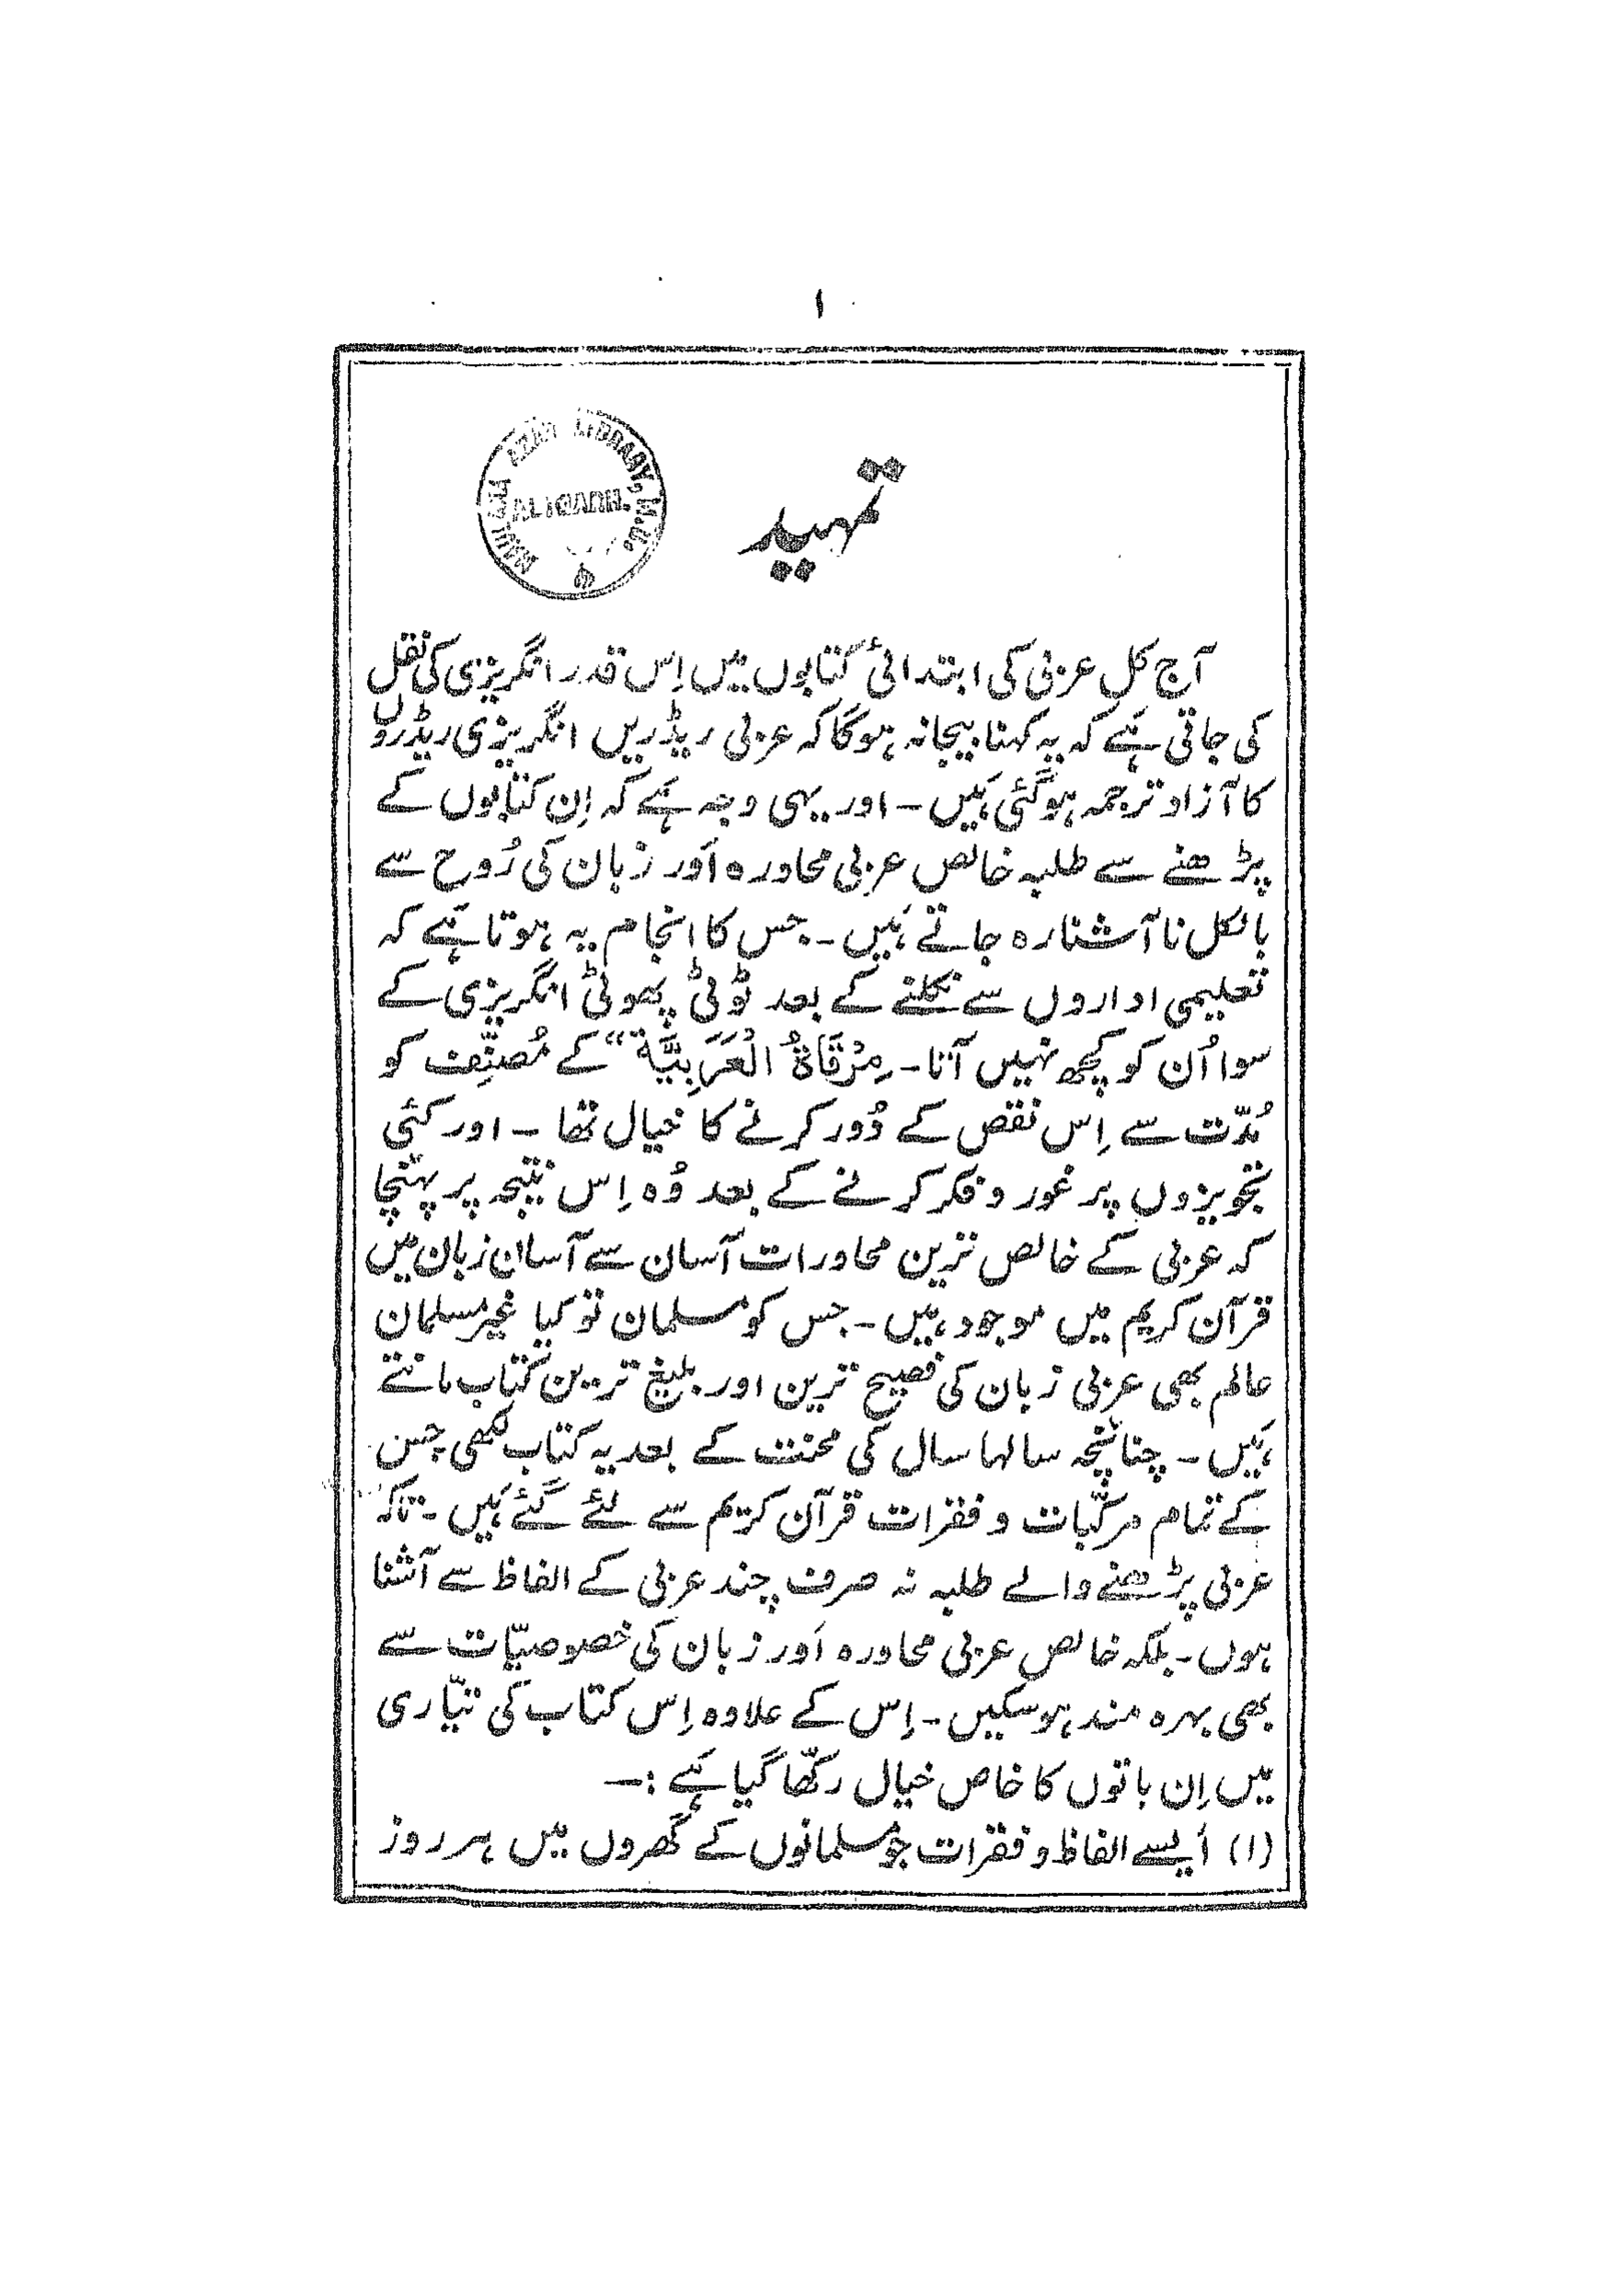 ۱
تمہید
MAULANA AZAD LIBRARY, M.U.
ALIGARH.
آج کل عربی کی ابتدائی کتابوں میں اِس قدر انگریزی کی نقل
کی جاتی ہَے کہ یہ کہنا بیجا نہ ہوگا کہ عربی ریڈریں انگریزی ریڈروں
کا آزاد ترجمہ ہوگئی ہَیں - اور یہی وجہ ہَے کہ اِن کتابوں کے
پڑھنے سے طلبہ خالص عربی محاورہ اَور زبان کی رُوح سے
بالکل ناآشنا رہ جاتے ہَیں - جس کا انجام یہ ہوتا ہَے کہ
تعلیمی اداروں سے نکلنے کے بعد ٹوٹی پھوٹی انگریزی کے
سوا اُن کو کچھ نہیں آتا - مِرْقَاةُ الْعَرَبِیَّة“ کے مُصنِّف کو
مُدّت سے اِس نقص کے دُور کرنے کا خیال تھا - اور کئی
تجویزوں پر غور و فکر کرنے کے بعد وُہ اِس نتیجہ پر پہنچا
کہ عربی کے خالص ترین محاورات آسان سے آسان زبان میں
قرآن کریم میں موجود ہیں - جس کو مسلمان تو کیا غیر مسلمان
عالم بھی عربی زبان کی فصیح ترین اور بلیغ ترین کتاب مانتے
ہَیں - چنانچہ سالہا سال کی محنت کے بعد یہ کتاب لکھی جس
کے تمام مرکّبات و فقرات قرآن کریم سے لئے گئے ہَیں - تاکہ
عربی پڑھنے والے طلبہ نہ صرف چند عربی کے الفاظ سے آشنا
ہوں - بلکہ خالص عربی محاورہ اَور زبان کی خصوصیّات سے
بھی بہرہ مند ہوسکیں - اِس کے علاوہ اِس کتاب کی تیّاری
میں اِن باتوں کا خاص خیال رکھّا گیا ہَے :—
(۱) اَیسے الفاظ و فقرات جو مسلمانوں کے گھروں میں ہر روز